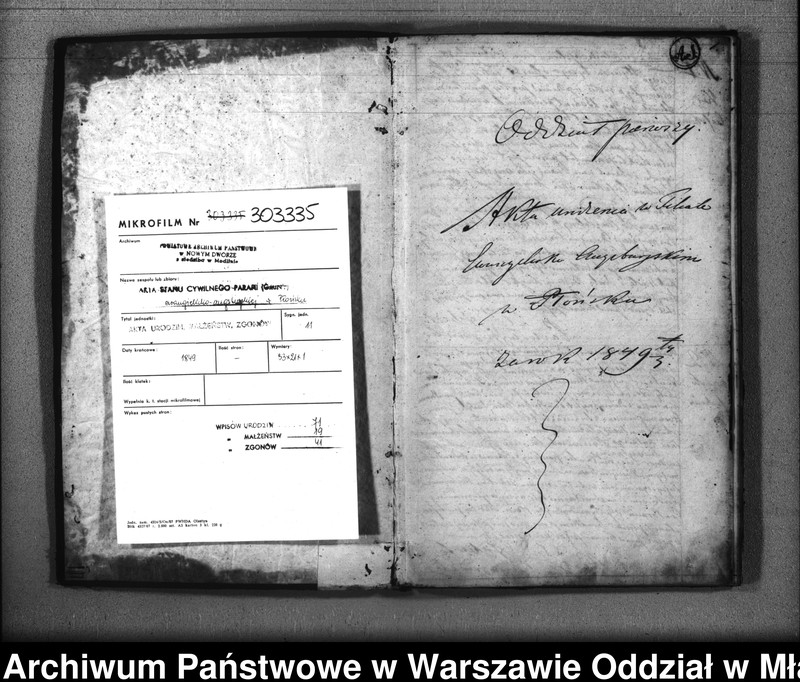 MIKROFILM Nr 303335 303335
Archiwum
POWIATOWE ARCHIWUM PAŃSTWOWE
w NOWYM DWORZE
z siedzibą w Modlinie
Nazwa zespołu lub zbioru:
AKTA STANU CYWILNEGO PARAFII (Gminy)
ewangelicko-augsburskiej w Płońsku
Tytuł jednostki:
Sygn. jedn.
AKTA URODZIN, MAŁŻEŃSTW, ZGONÓW
11
Daty krańcowe:
Ilość stron:
Wymiary:
1849
–
Ilość klatek:
Wypełnia k. t. stacji mikrofilmowej
Wykaz pustych stron:
WPISÓW URODZIN 71
„ MAŁŻEŃSTW 19
„ ZGONÓW 41
Oddział pierwszy.
Akta urodzenia w Filiale
Ewangelicko Augsburskim
w Płońsku
za rok 1849
Archiwum Państwowe w Warszawie Oddział w Mła